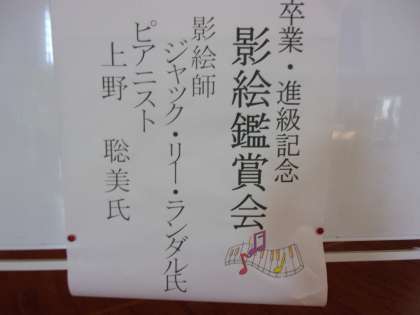 卒業・進級記念
影絵鑑賞会
影絵師
ジャック・リー・ランダル氏
ピアニスト
上野　聡美氏